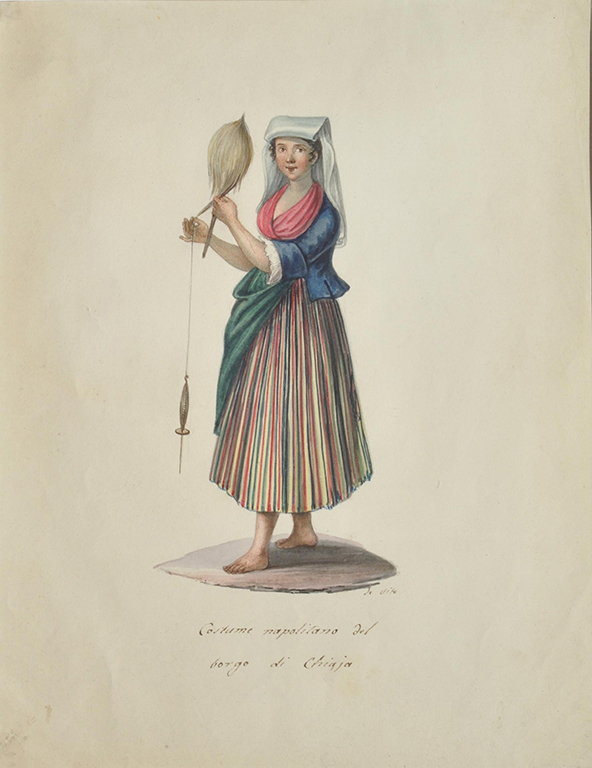 De Vito
Costume napolitano del
borgo di Chiaja